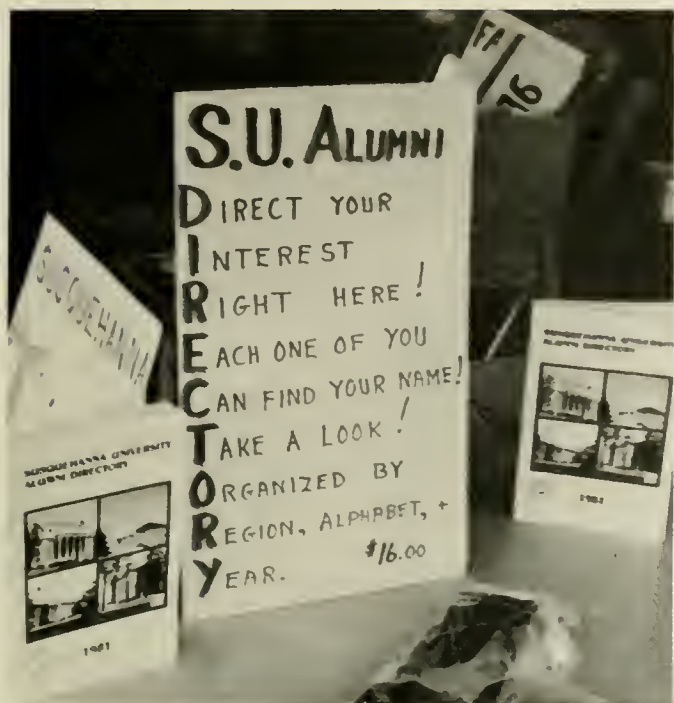 FA/
16
S.U. ALUMNI
DIRECT YOUR
INTEREST
RIGHT HERE!
EACH ONE OF YOU
CAN FIND YOUR NAME!
TAKE A LOOK!
ORGANIZED BY
REGION, ALPHABET, +
YEAR. $16.00
SUSQUEHANNA
SUSQUEHANNA UNIVERSITY
ALUMNI DIRECTORY
1981
SUSQUEHANNA UNIVERSITY
ALUMNI DIRECTORY
1981